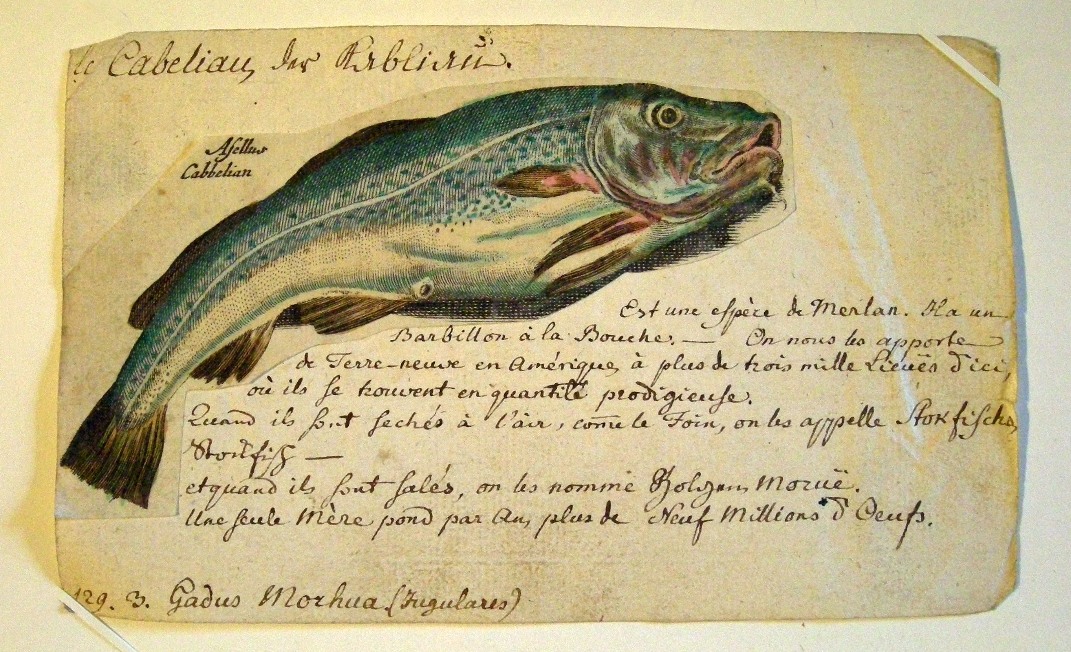 le Cabeliau, der Kabliaŭ.
Asellus
Cabbelian
Est une espèce de Merlan. Il a un
Barbillon à la Bouche. — On nous les apporte
de Terre-neuve en Amérique, à plus de trois mille Lieuës d'ici,
où ils se trouvent en quantité prodigieuse.
Quand ils sont sechés à l'air, come le Foin, on les appelle Stokfischs,
Stockfisch —
et quand ils sont salés, on les nomme Moruë.
Une seule Mère pond par An, plus de Neuf Millions d'Oeufs.
129. 3. Gadus Morhua (Jugulares)